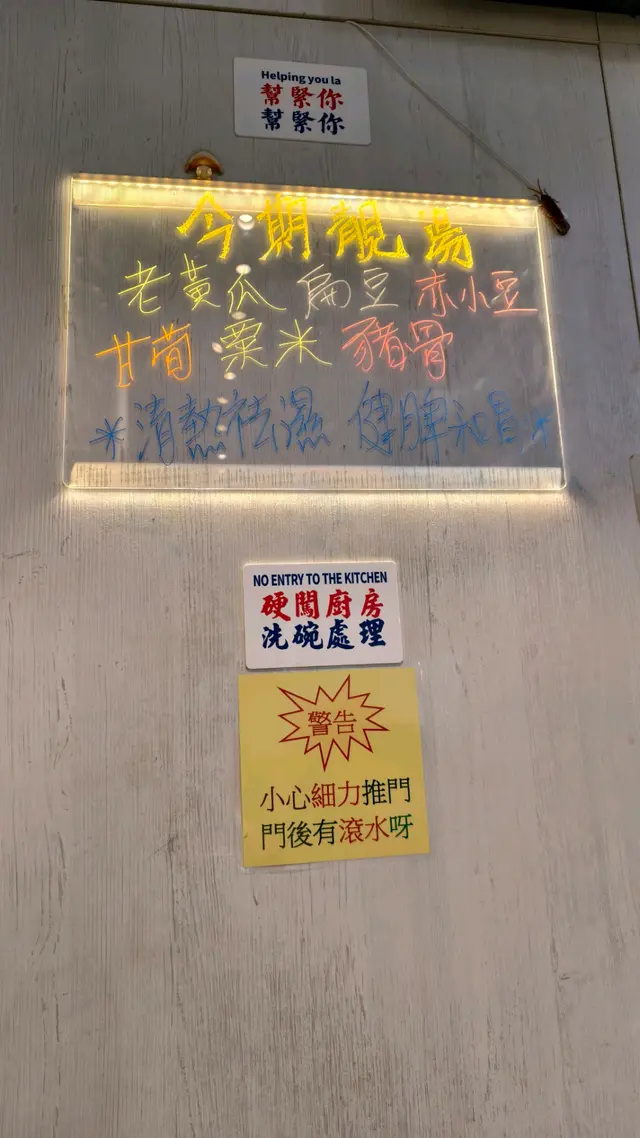 Helping you la
幫緊你
幫緊你
今期靚湯
老黃瓜 扁豆 赤小豆
甘筍 粟米 豬骨
*清熱祛濕 健脾
NO ENTRY TO THE KITCHEN
硬闖廚房
洗碗處理
警告
小心細力推門
門後有滾水呀